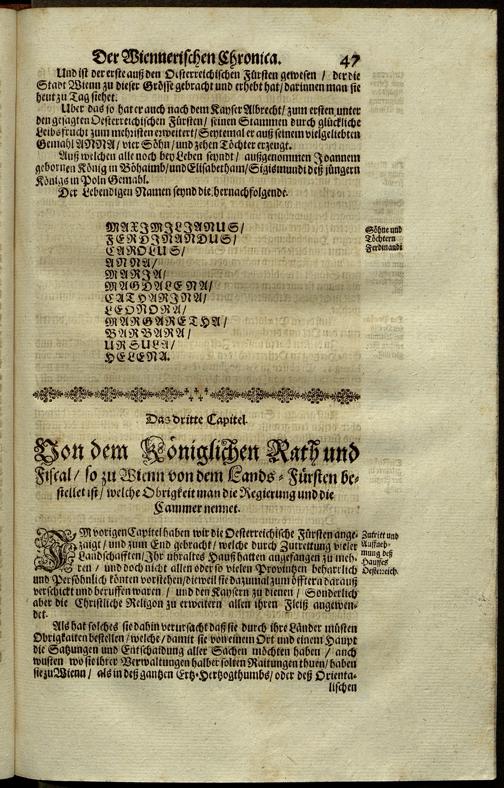 Der Wiennerischen Chronica. 47
Und ist der erste auß den Oesterreichischen Fürsten gewesen / der die
Stadt Wienn zu dieser Grösse gebracht und erhebt hat / darinnen man sie
heut zu Tag siehet.
Uber das so hat er auch nach dem Kayser Albrecht / zum ersten unter
den gesagten Oesterreichischen Fürsten / seinen Stammen durch glückliche
Leibsfrucht zum mehristen erweitert / Seytemal er auß seinem vielgeliebten
Gemahl ANNA / vier Söhn / und zehen Töchter erzeugt.
Auß welchen alle noch bey Leben seyndt / außgenommen Joannem
gebornen König in Böhaimb / und Elisabetham / Sigismundi deß jüngern
Königs in Poln Gemahl.
Der Lebendigen Namen seynd die hernachfolgende.
MAXIMILIANUS /
FERDINANDUS /
CAROLUS /
ANNA /
MARIA /
MAGDALENA /
CATHARINA /
LEONORA /
MARGARETHA /
BARBARA /
URSULA /
HELENA.
Söhne und
Töchtern
Ferdinandi
Das dritte Capitel.
Von dem Königlichen Rath und
Fiscal / so zu Wienn von dem Lands-Fürsten be-
stellet ist / welche Obrigkeit man die Regierung und die
Cammer nennet.
IM vorigen Capitel haben wir die Oesterreichische Fürsten ange-
zeigt / und zum End gebracht / welche durch Zutrettung vieler
Landschafften / Ihr uhraltes Hauß hatten angefangen zu meh-
ren / und doch nicht allen oder so vielen Provintzen beharrlich
und Persöhnlich könten vorstehen / dieweil sie dazumal zum öfftern darauß
verschickt und beruffen waren / und den Kaysern zu dienen / Sonderlich
aber die Christliche Religon zu erweitern allen ihren Fleiß angewen-
det.
Zutritt und
Auffneh-
mung deß
Hauses
Oesterreich.
Als hat solches sie dahin verursacht daß sie durch ihre Länder müsten
Obrigkaiten bestellen / welche / damit sie von einem Ort und einem Haupt
die Satzungen und Entschaidung aller Sachen möchten haben / auch
wusten wo sie ihrer Verwaltungen halber solten Raitungen thuen / haben
sie zu Wienn / als in deß gantzen Ertz-Hertzogthumbs / oder deß Orienta-
lischen